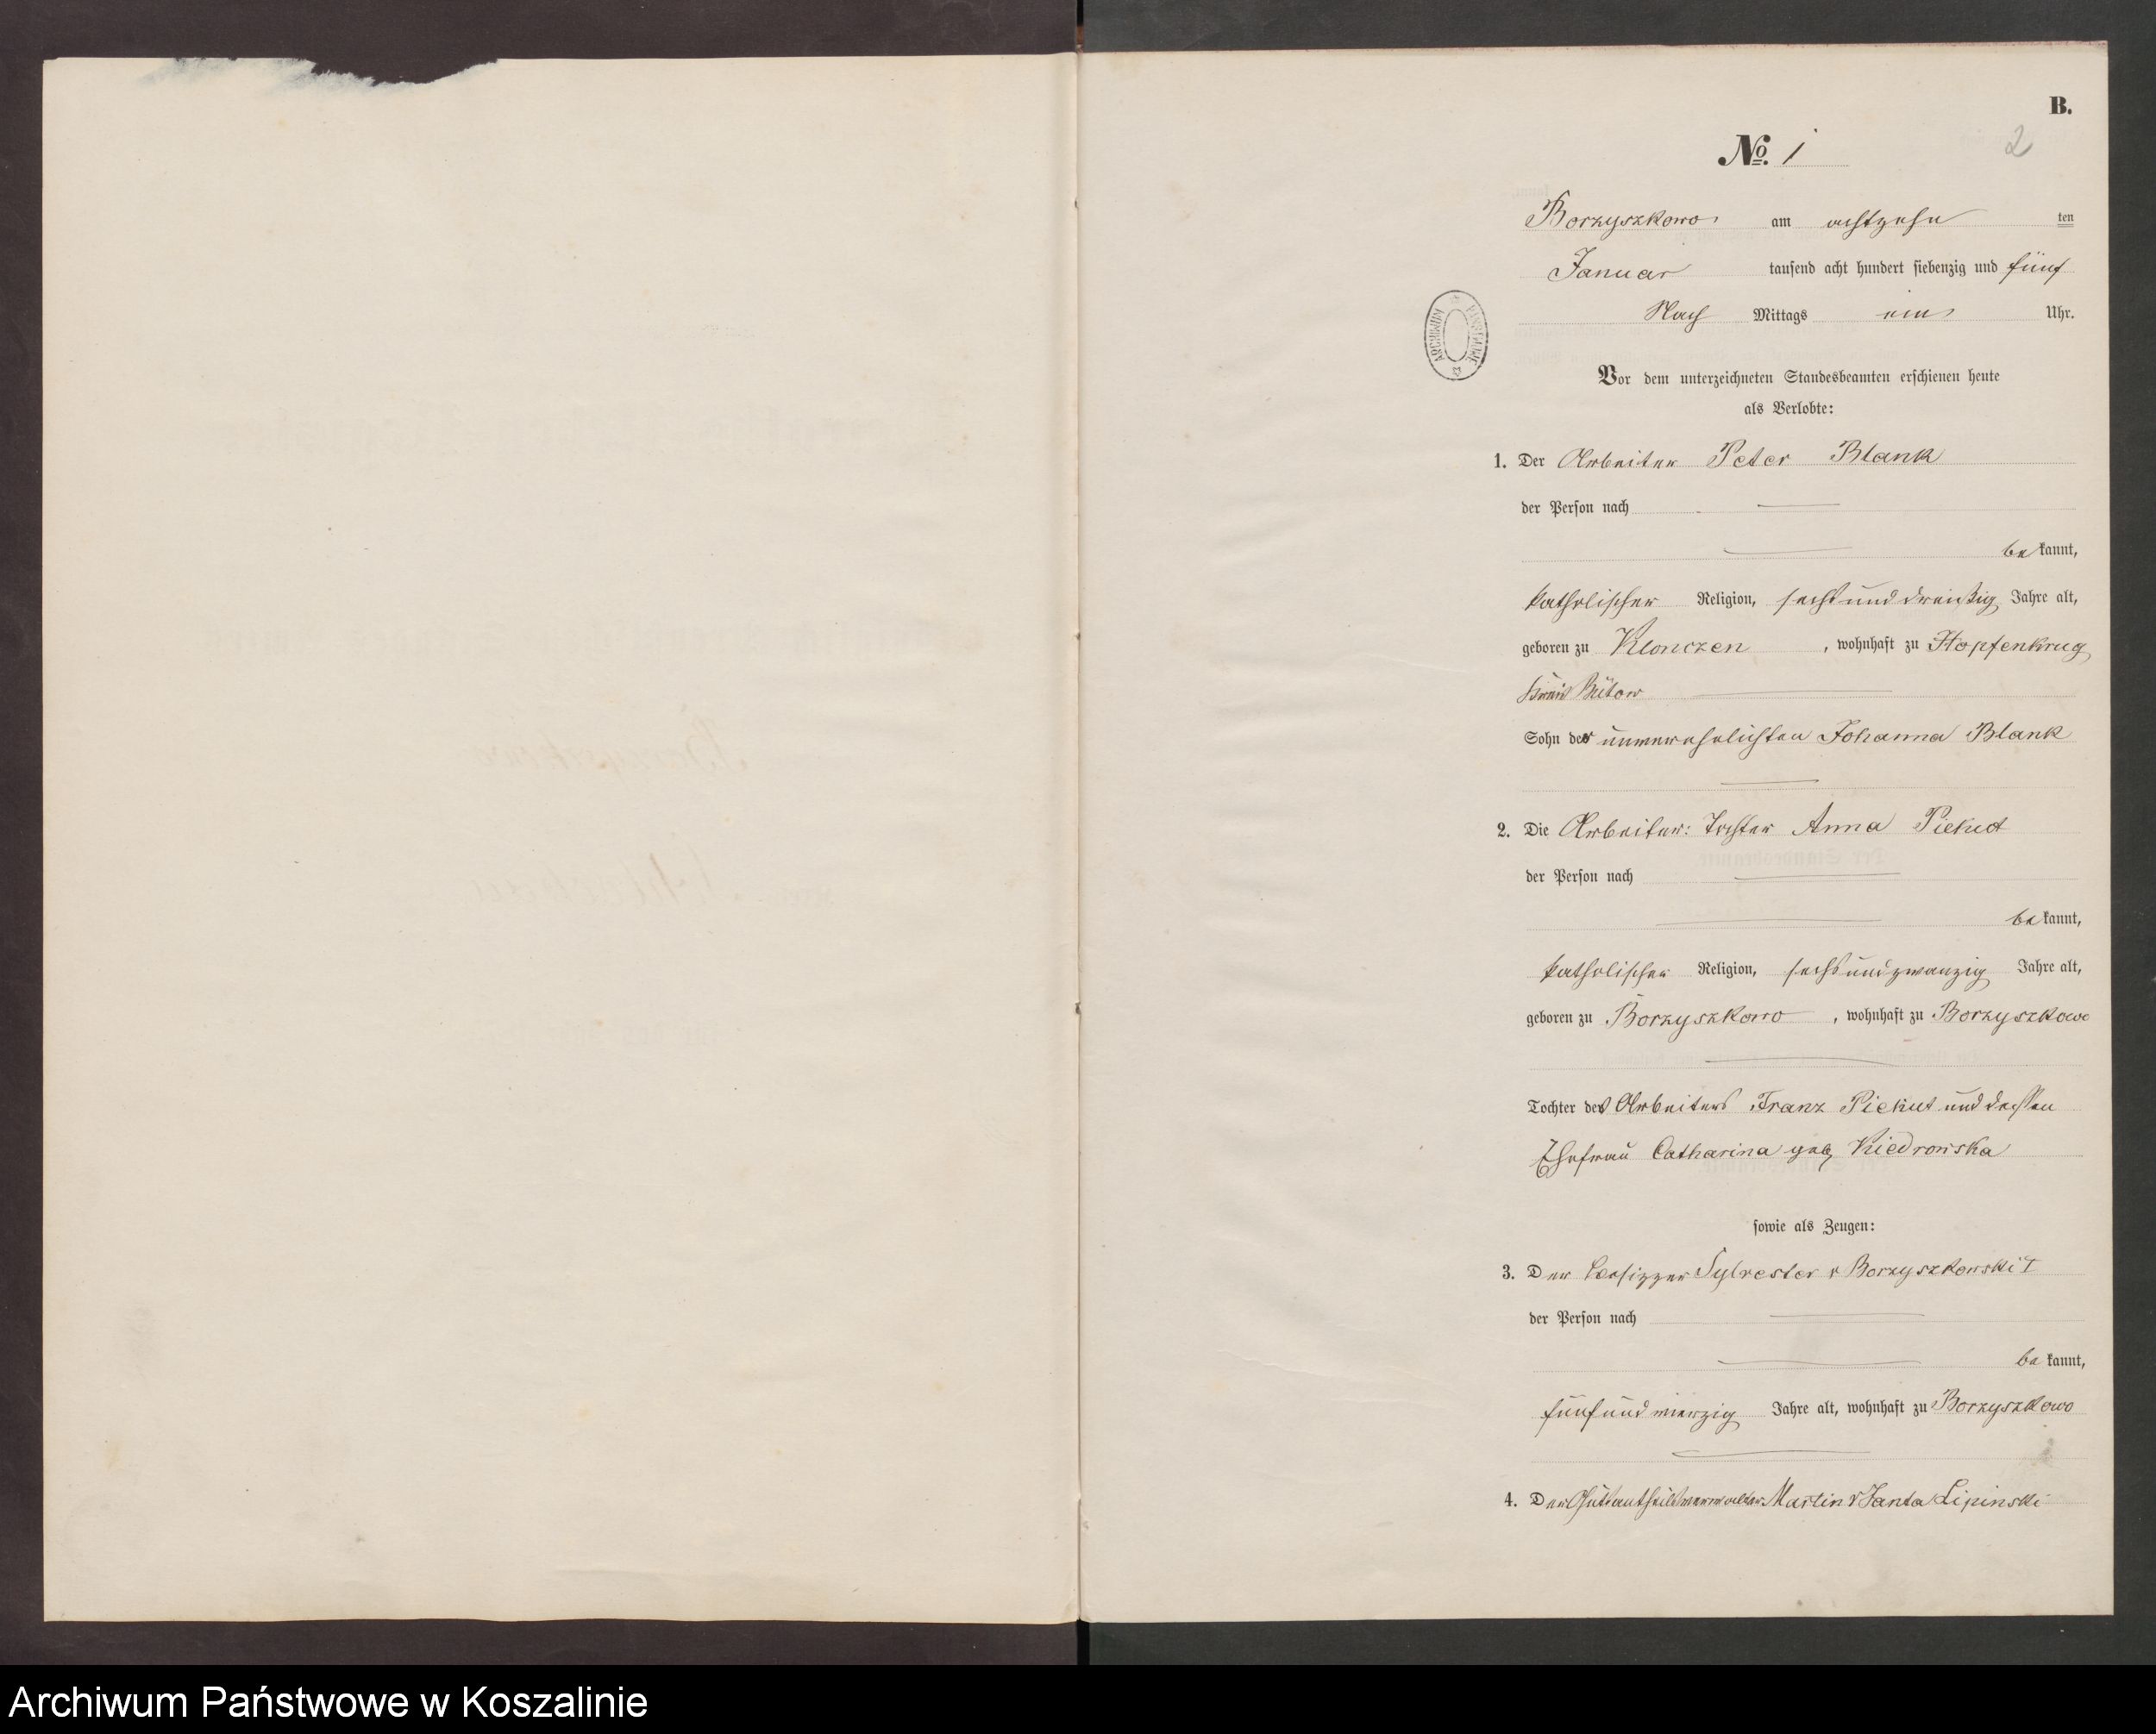 B.
2
No. 1
Borzyszkowo am achtzehn ten
Januar tausend acht hundert siebenzig und fünf
Nach Mittags ein Uhr.
ARCHIWUM PAŃSTWOWE
Vor dem unterzeichneten Standesbeamten erschienen heute
als Verlobte:
1. Der Arbeiter Peter Blank
der Person nach
be kannt,
katholischer Religion, sechsunddreißig Jahre alt,
geboren zu Klonczen, wohnhaft zu Hopfenkrug
Kreis Bütow
Sohn der unverehelichten Johanna Blank
2. Die Arbeiter: Tochter Anna Piekut
der Person nach
be kannt,
katholischer Religion, sechsundzwanzig Jahre alt,
geboren zu Borzyszkowo, wohnhaft zu Borzyszkowo
Tochter des Arbeiters Franz Piekut und dessen
Ehefrau Catharina geb Kiedrowska
sowie als Zeugen:
3. Der Besitzer Sylvester v Borzyszkowski I
der Person nach
be kannt,
fünfundvierzig Jahre alt, wohnhaft zu Borzyszkowo
4. Der Gutsantheilsverwalter Martin v Janta Lipinski
Archiwum Państwowe w Koszalinie